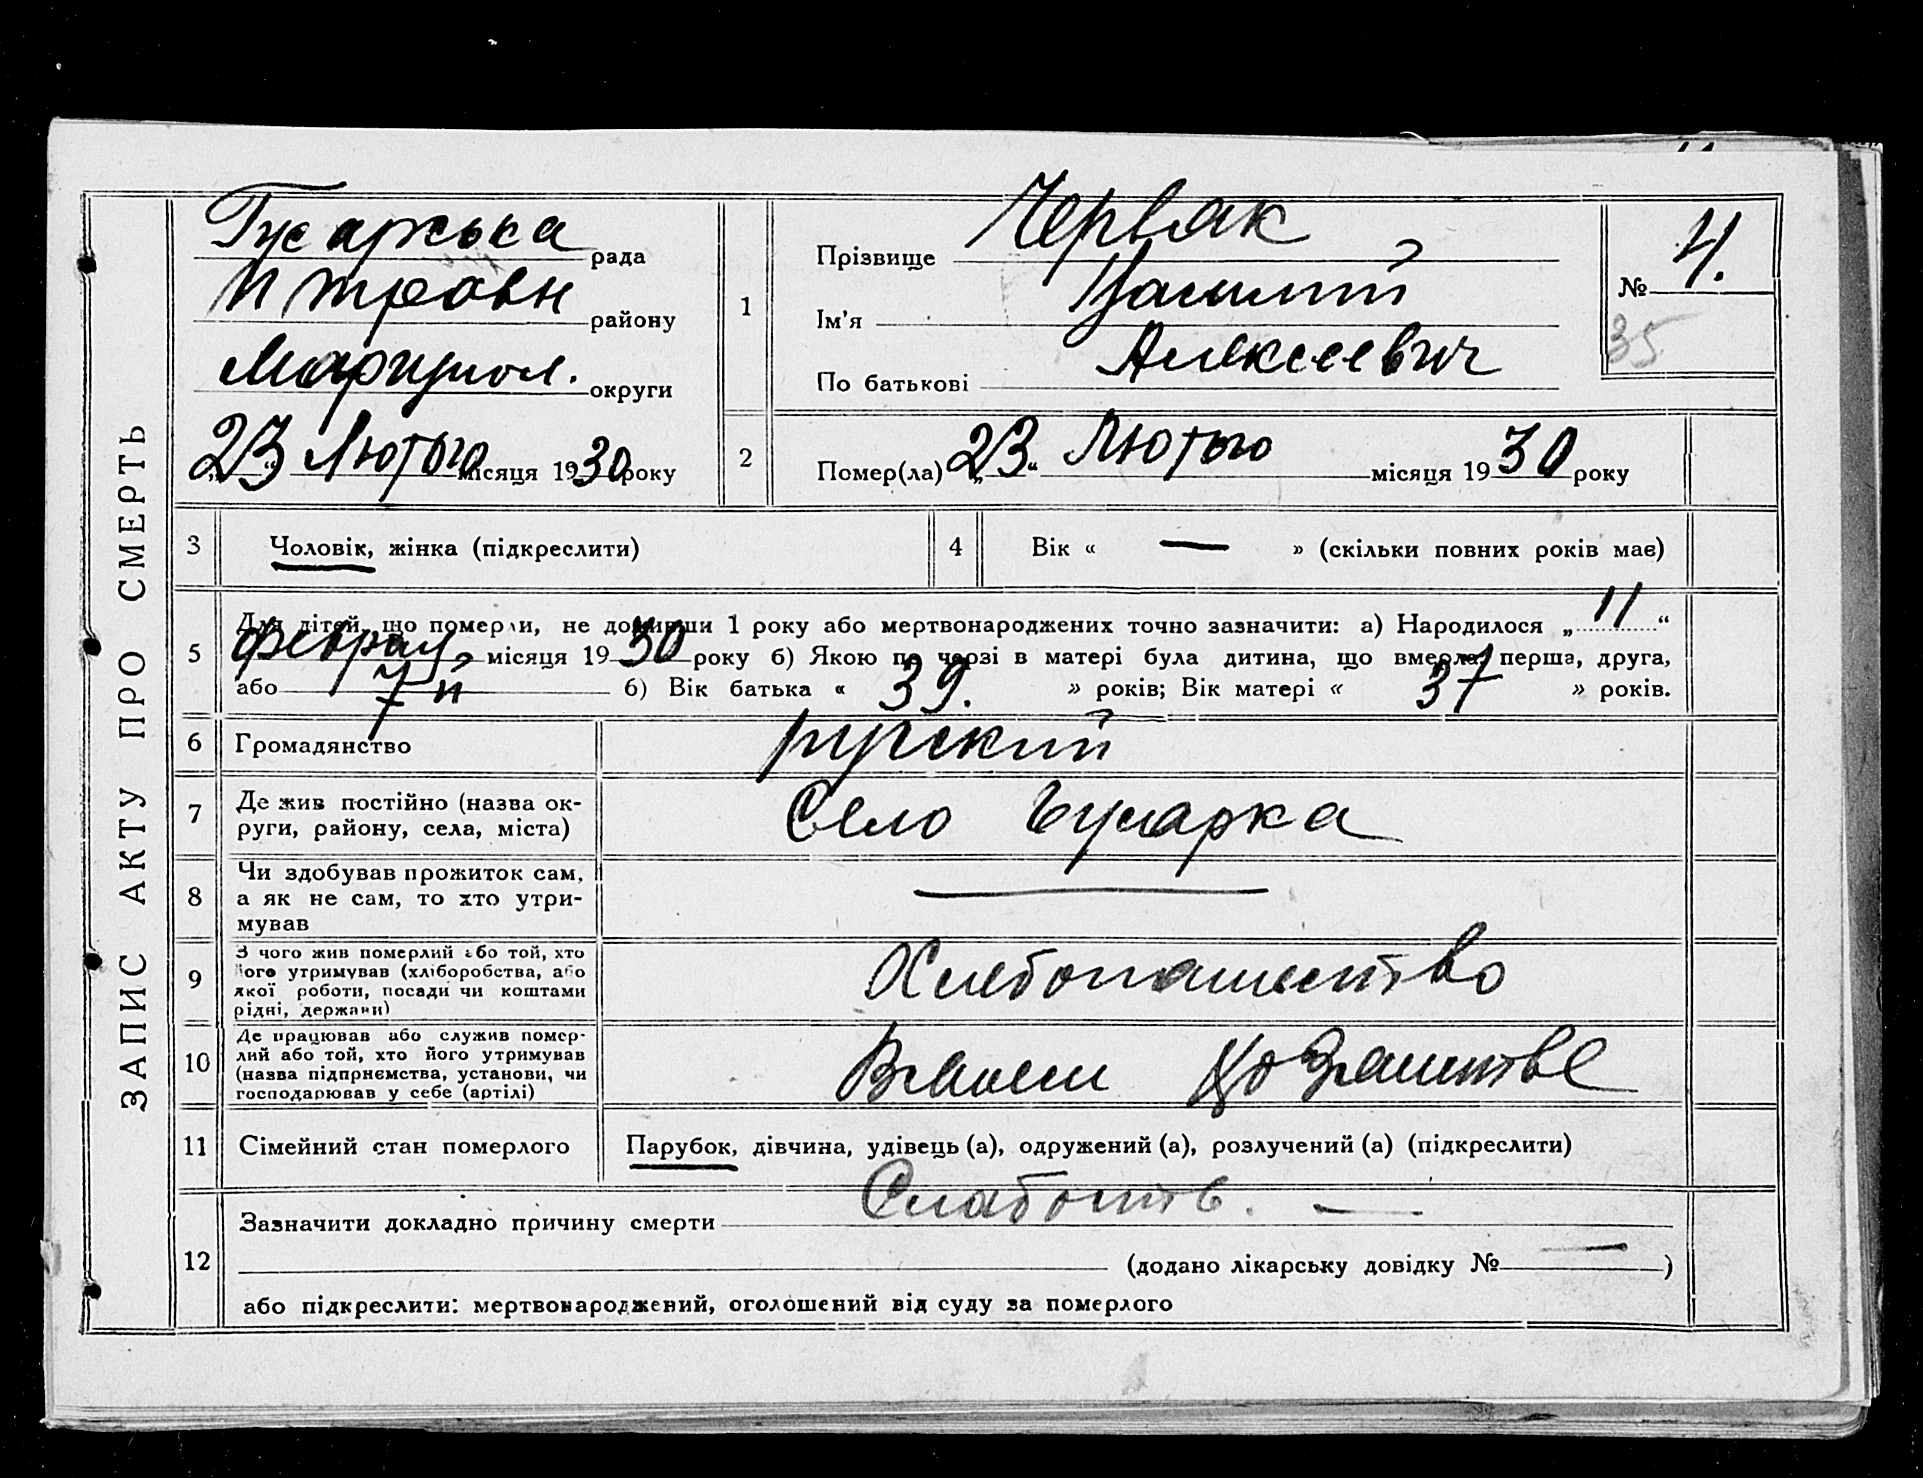 ЗАПИС АКТУ ПРО СМЕРТЬ
Гусарська рада
П Тровн району
Мариупол. округи
„23“ Лютого місяця 1930 року
1
Прізвище Червяк
Ім'я Василий
По батькові Алексеевич
№ 4.
35
2 Помер(ла) „23“ Лютого місяця 1930 року
3 Чоловік, жінка (підкреслити)
4 Вік « — » (скільки повних років має)
5 Для дітей, що померли, не доживши 1 року або мертвонароджених точно зазначити: а) Народилося „11“
феврал місяця 1930 року б) Якою по черзі в матері була дитина, що вмерла: перша, друга,
або 7й б) Вік батька « 39. » років; Вік матері « 37 » років.
6 Громадянство русский
7 Де жив постійно (назва ок-
руги, району, села, міста) Село Гусарка
8 Чи здобував прожиток сам,
а як не сам, то хто утри-
мував —
9 З чого жив померлий або той, хто
його утримував (хліборобства, або
якої роботи, посади чи коштами
рідні, держави) Хлебопашество
10 Де працював або служив помер-
лий або той, хто його утримував
(назва підприємства, установи, чи
господарював у себе (артілі) Всвоем хозяистве
11 Сімейний стан померлого Парубок, дівчина, удівець (а), одружений (а), розлучений (а) (підкреслити)
12 Зазначити докладно причину смерти Слабость. —
(додано лікарську довідку № — )
або підкреслити: мертвонароджений, оголошений від суду за померлого